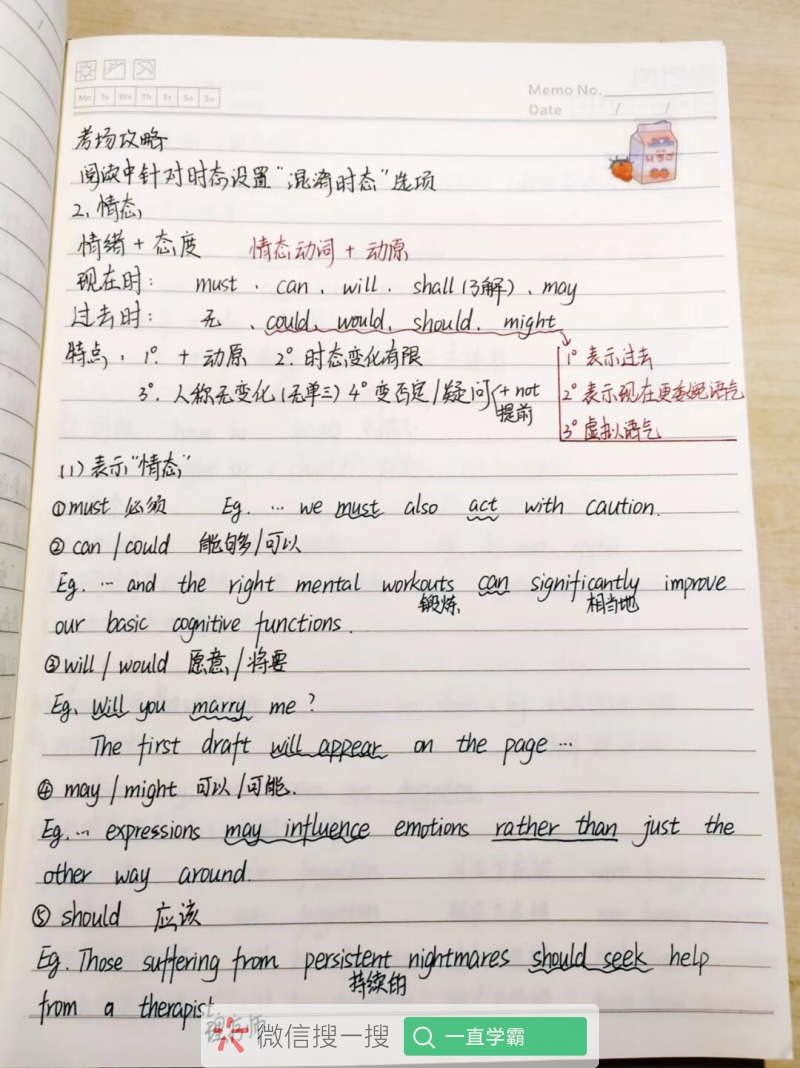 Memo No.
Mo Tu We Th Fr Sa Su
Date / /
考场攻略
阅读中针对时态设置“混淆时态”选项
2、情态
情绪 + 态度 情态动词 + 动原
现在时: must 、 can 、 will 、 shall(了解) 、 may
过去时: 无 、 could、 would、 should、 might
特点: 1° + 动原 2° 时态变化有限
3° 人称无变化(无单三) 4° 变否定/疑问 + not
提前
1° 表示过去
2° 表示现在更委婉语气
3° 虚拟语气
(1) 表示“情态”
① must 必须 Eg. … we must also act with caution.
② can / could 能够/可以
Eg. … and the right mental workouts can significantly improve
锻炼 相当地
our basic cognitive functions.
③ will / would 愿意/将要
Eg. Will you marry me ?
The first draft will appear on the page …
④ may / might 可以/可能.
Eg. … expressions may influence emotions rather than just the
other way around.
⑤ should 应该
Eg. Those suffering from persistent nightmares should seek help
持续的
from a therapist
微信搜一搜 一直学霸